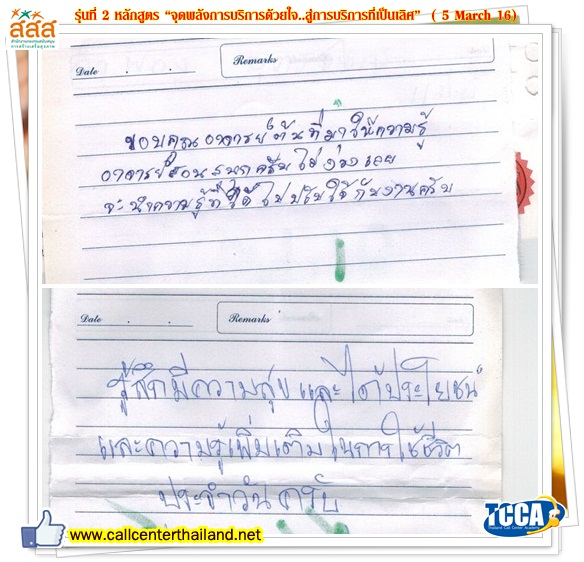 สสส
สำนักงานกองทุนสนับสนุน
การสร้างเสริมสุขภาพ
รุ่นที่ 2 หลักสูตร “จุดพลังการบริการด้วยใจ..สู่การบริการที่เป็นเลิศ” ( 5 March 16)
Date . . Remarks
ขอบคุณอาจารย์ต้นที่มาให้ความรู้
อาจารย์สอนสนุกครับไม่ง่วงเลย
จะนำความรู้ที่ได้ไปปรับใช้กับงานครับ
Date . . Remarks
รู้สึกมีความสุข และได้ประโยชน์
และความรู้เพิ่มเติมในการใช้ชีวิต
ประจำวันครับ
www.callcenterthailand.net
TCCA
Thailand Call Center Academy